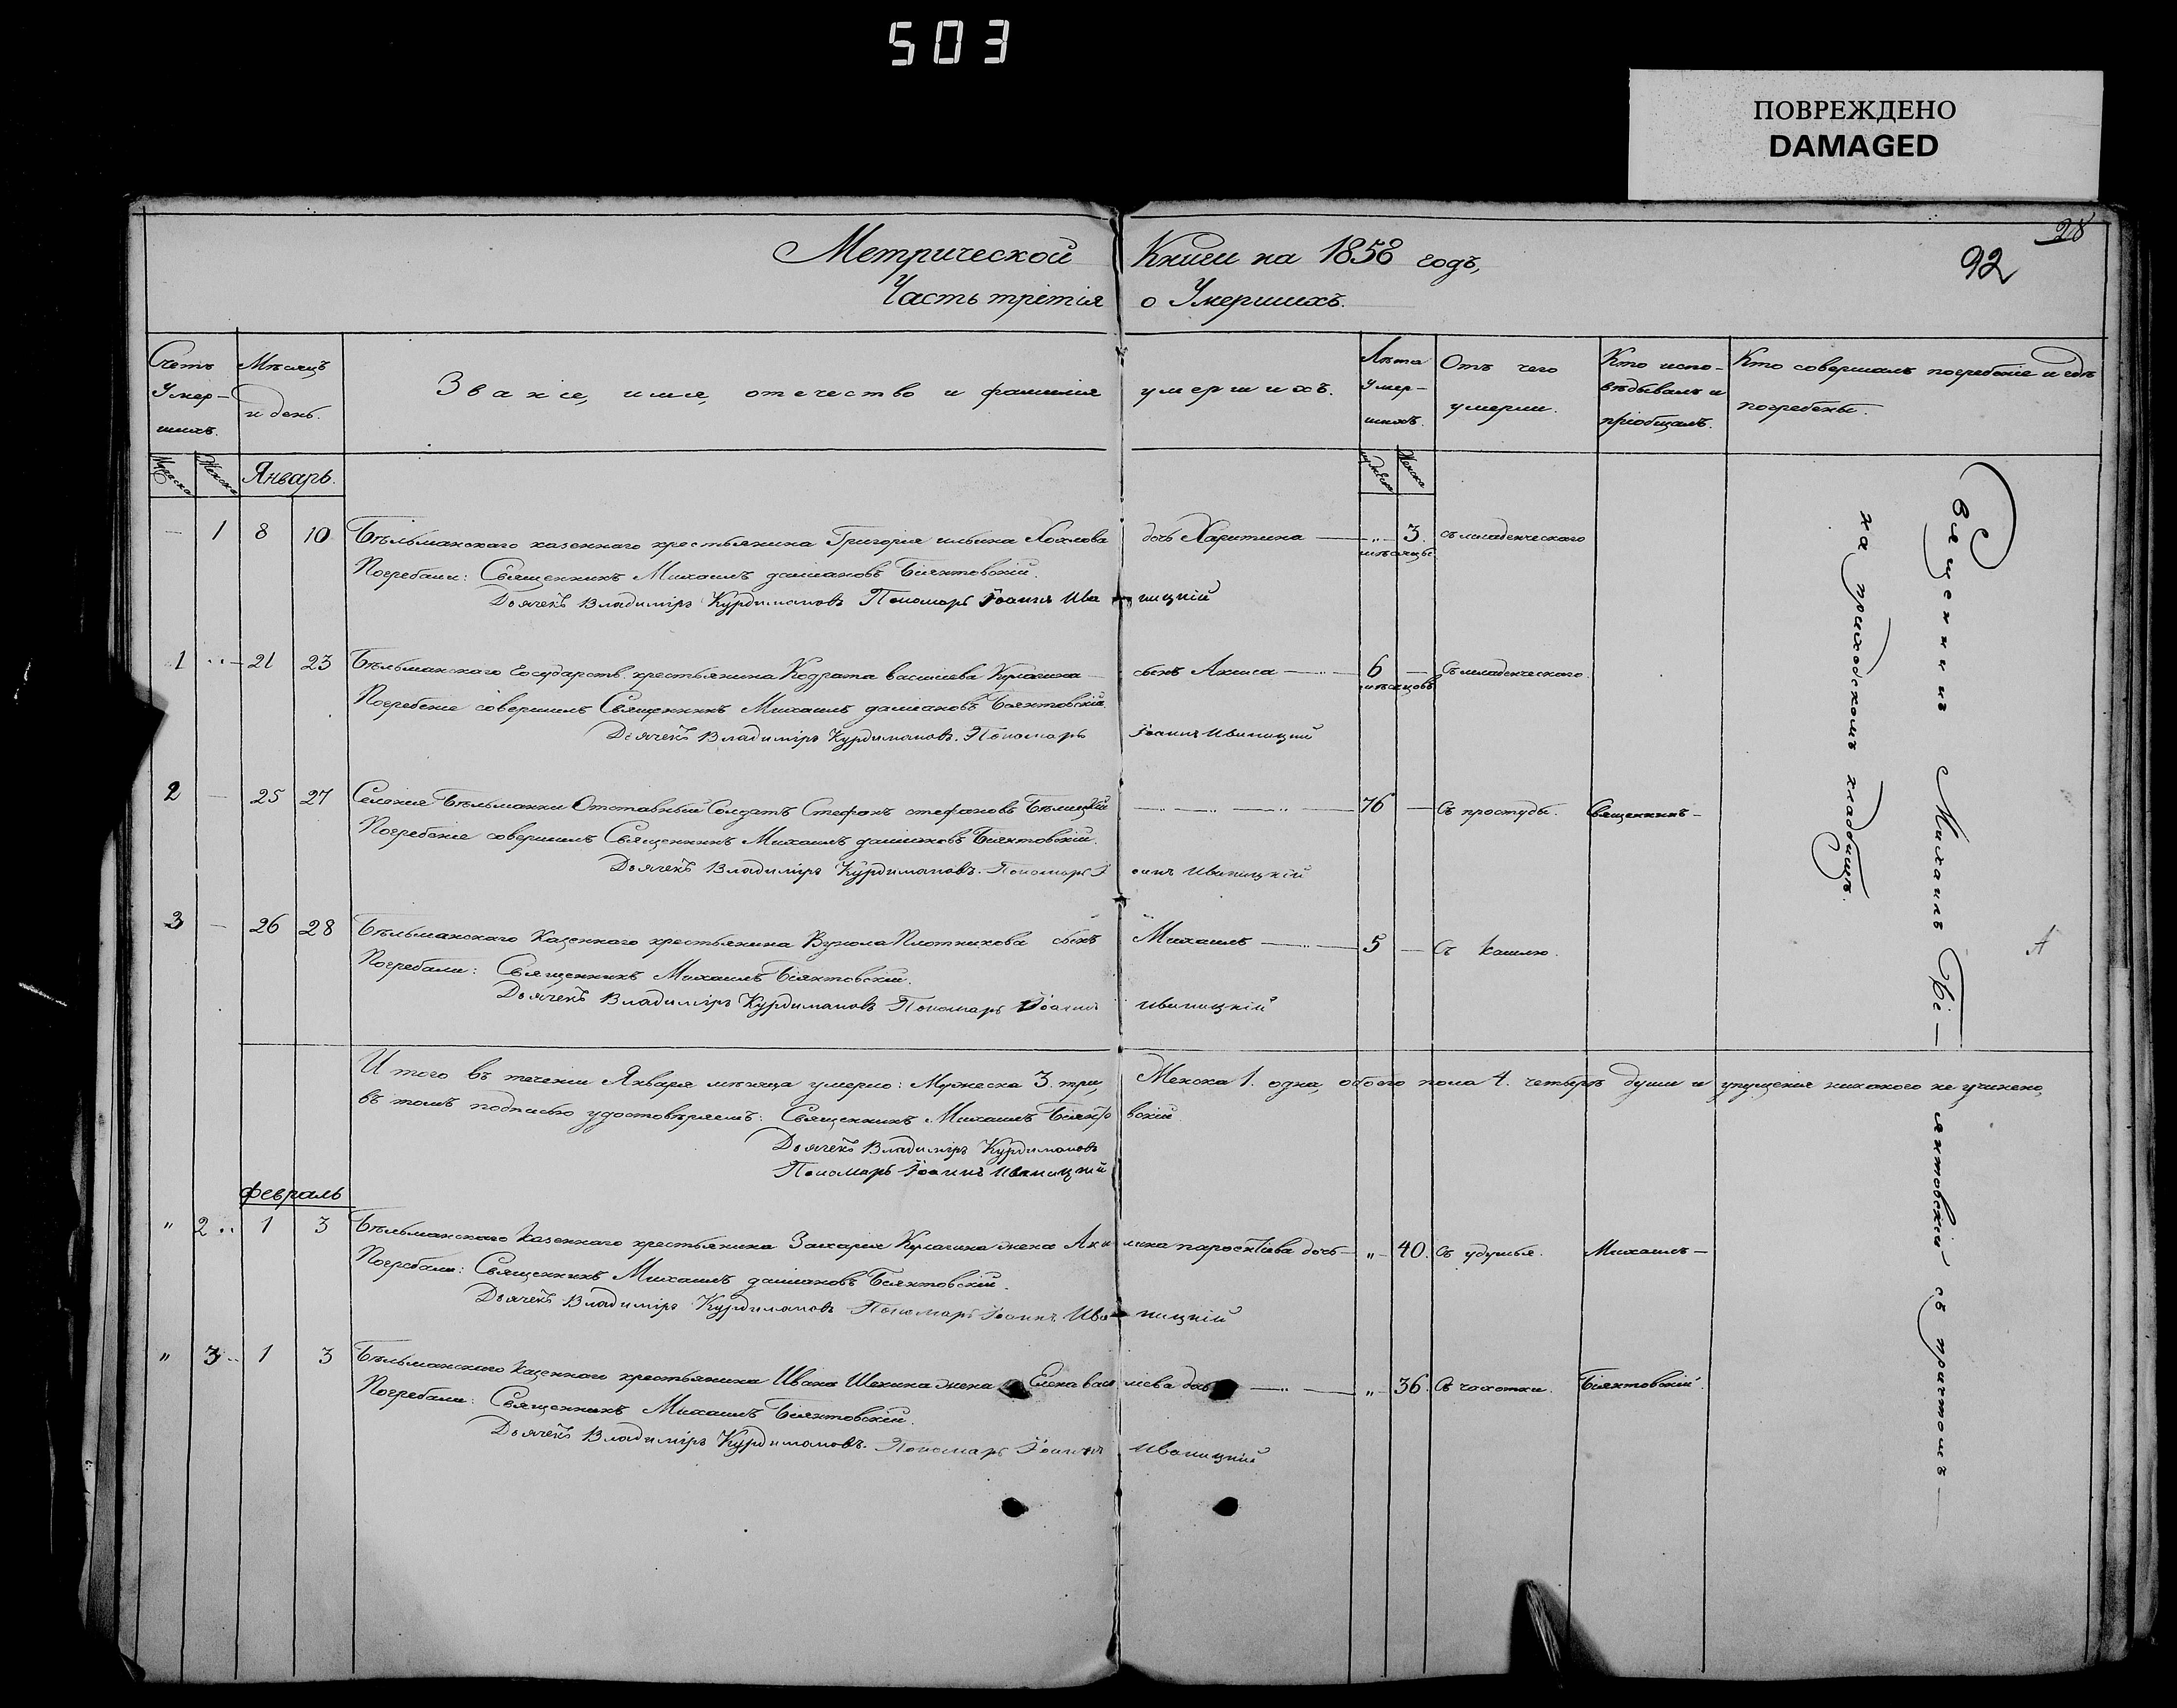 503
ПОВРЕЖДЕНО
DAMAGED
28
92
Метрической Книги на 1858 годъ,
Часть третія о Умершихъ.
Счетъ Умер-шихъ.
Мѣсяцъ и день.
Званіе, имя, отечество и фамилія умершихъ.
Лѣта Умер-шихъ.
Отъ чего умерли.
Кто испо-вѣдывалъ и пріобщалъ.
Кто совершалъ погребеніе и гдѣ погребены.
Мужеска Женска Январь. Мужеска Женска
— 1 8 10 Бѣльманскаго казеннаго крестьянина Григорія ильина Хохлова дочь Харитина — „ 3. мѣсяцы съ младенческаго
Погребали: Священникъ Михаилъ даміановъ Біянтовскій.
Дьячекъ Владиміръ Курдимановъ Пономарь Іоаннъ Иваницкій
1 21 23 Бѣльманскаго Государств. крестьянина Кодрата василиева Кулагина сынъ Акиса — 6 мѣсяцовъ — Съ младенческаго.
Погребеніе совершилъ Священникъ Михаилъ даміановъ Біянтовскій.
Дьячекъ Владиміръ Курдимановъ. Пономарь Іоаннъ Иваницкій
2 — 25 27 Селенія Бѣльманки Отставный Солдатъ Стефанъ стефановъ Бѣлицкій — 76 — Съ простуды. Священникъ —
Погребеніе совершилъ Священникъ Михаилъ даміановъ Біянтовскій.
Дьячекъ Владиміръ Курдимановъ. Пономарь Іоаннъ Иваницкій
3 — 26 28 Бѣльманскаго Казеннаго крестьянина Вукола Плотникова сынъ Михаилъ — 5 — Съ кашлю.
Погребали: Священникъ Михаилъ Біянтовскій.
Дьячекъ Владиміръ Курдимановъ Пономарь Іоаннъ Иваницкій
И того въ теченіи Января мѣсяца умерло: Мужеска 3. три, Женска 1. одна, обоего пола 4. четыре души и упущенія никакого не учинено,
въ томъ подписью удостовѣряемъ: Священникъ Михаилъ Біянтовскій.
Дьячекъ Владиміръ Курдимановъ
Пономарь Іоаннъ Иваницкій
февраль
„ 2 1 3 Бѣльманскаго казеннаго крестьянина Захарія Кулагина жена Акилина дочь — „ 40. Съ удушья. Михаилъ —
Погребали: Священникъ Михаилъ даміановъ Біянтовскій.
Дьячекъ Владиміръ Курдимановъ Пономарь Іоаннъ Иваницкій
„ 3 1 3 Бѣльманскаго казеннаго крестьянина Ивана Шекина жена Елена василіева дочь — „ 36. Съ чахотки. Біянтовскій.
Погребали: Священникъ Михаилъ Біянтовскій.
Дьячекъ Владиміръ Курдимановъ. Пономарь Іоаннъ Иваницкій
Священникъ Михаилъ Бі—янтовскій съ причтомъ —
на приходскомъ кладбищѣ.